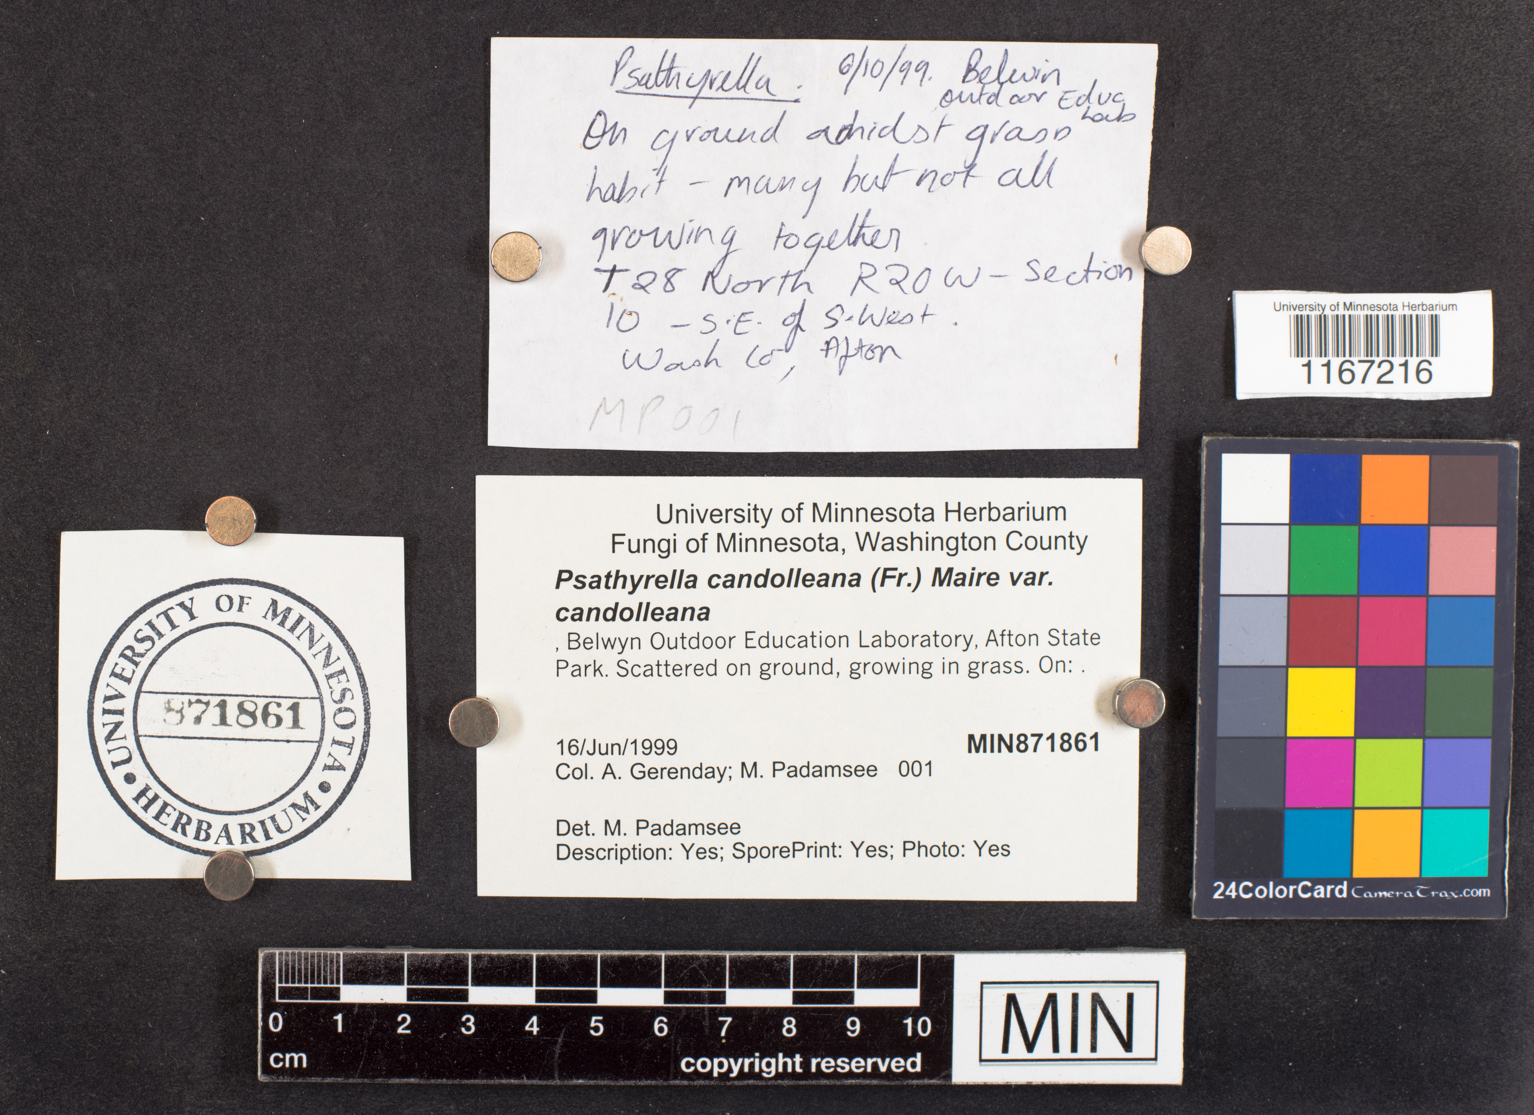 Psathyrella. 6/10/99. Belwin
outdoor Educ
Lab
On ground amidst grass
habit - many but not all
growing together
T28 North R20W - Section
10 - S.E. of S.West.
Wash Co, Afton
MP001
University of Minnesota Herbarium
1167216
University of Minnesota Herbarium
Fungi of Minnesota, Washington County
Psathyrella candolleana (Fr.) Maire var.
candolleana
, Belwyn Outdoor Education Laboratory, Afton State
Park. Scattered on ground, growing in grass. On: .
16/Jun/1999
MIN871861
Col. A. Gerenday; M. Padamsee 001
Det. M. Padamsee
Description: Yes; SporePrint: Yes; Photo: Yes
UNIVERSITY OF MINNESOTA
871861
• HERBARIUM •
24ColorCard CameraTrax.com
0 1 2 3 4 5 6 7 8 9 10
cm
copyright reserved
MIN